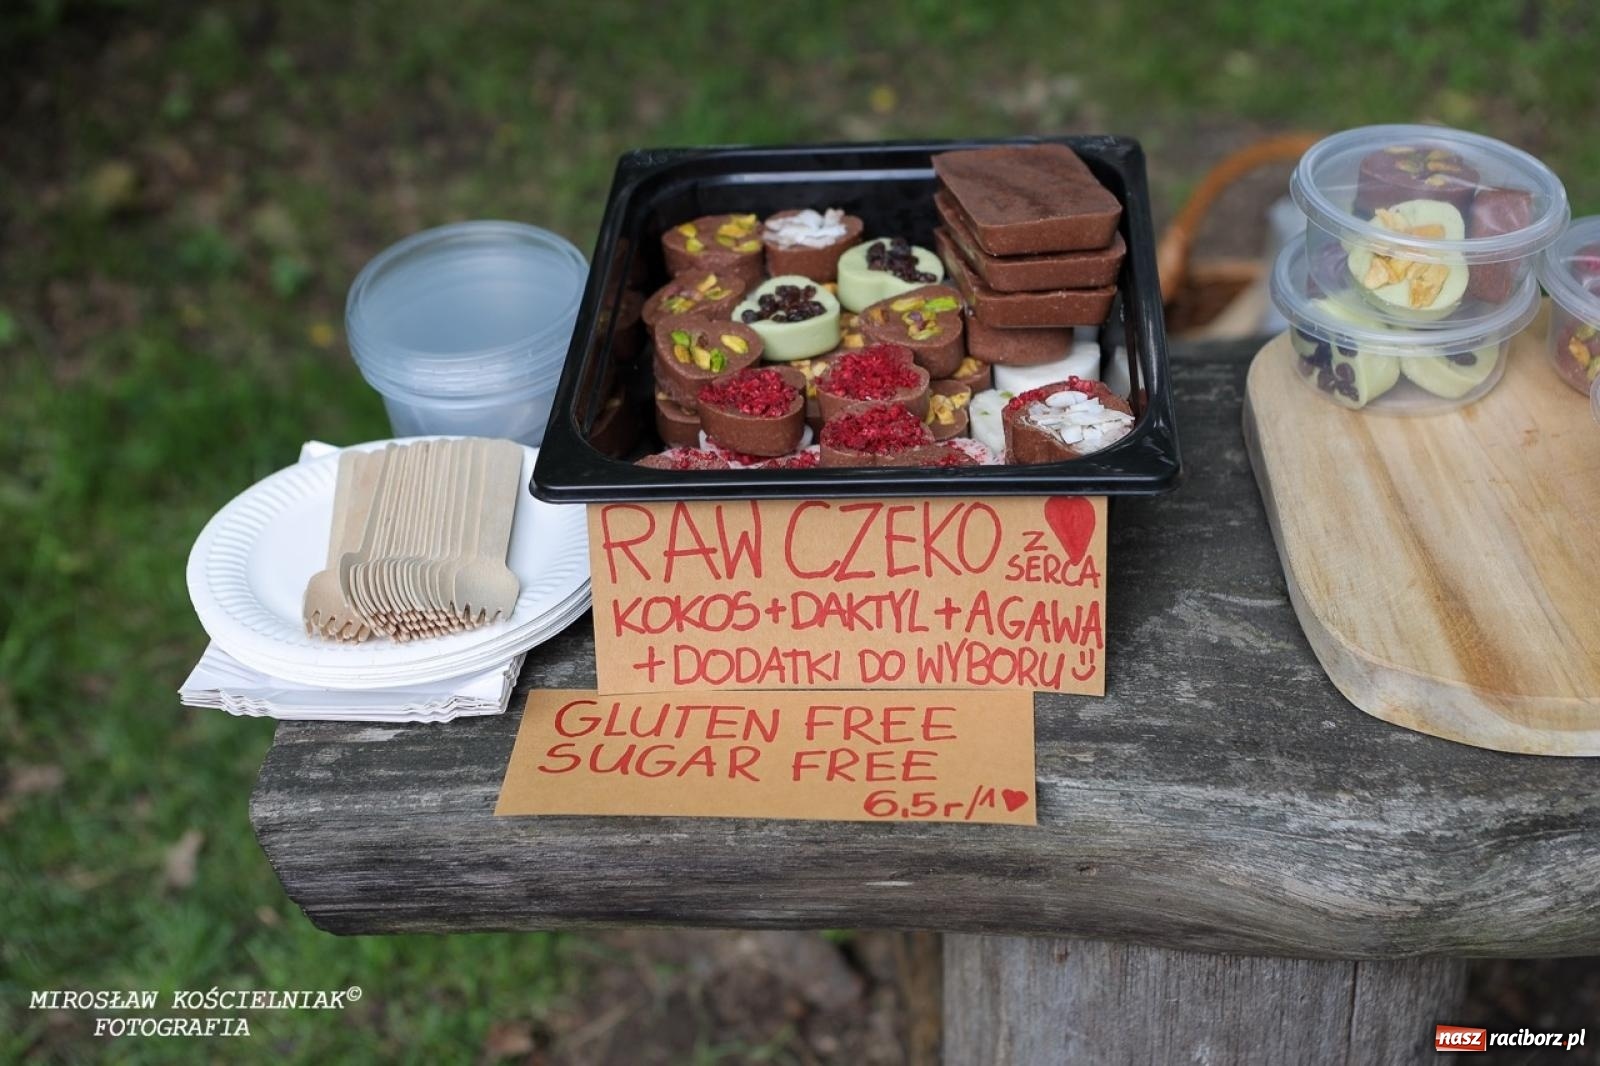 RAW CZEKO Z SERCA
KOKOS + DAKTYL + AGAWA
+ DODATKI DO WYBORU
GLUTEN FREE
SUGAR FREE
6,5r/1
MIROSŁAW KOŚCIELNIAK©
FOTOGRAFIA
nasz raciborz.pl